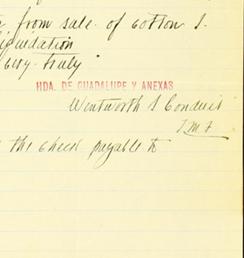 from sale of Cotton S.
liquidation
Very truly
HDA. DE GUADALUPE Y ANEXAS
Wentworth S Conduit
the check payable to